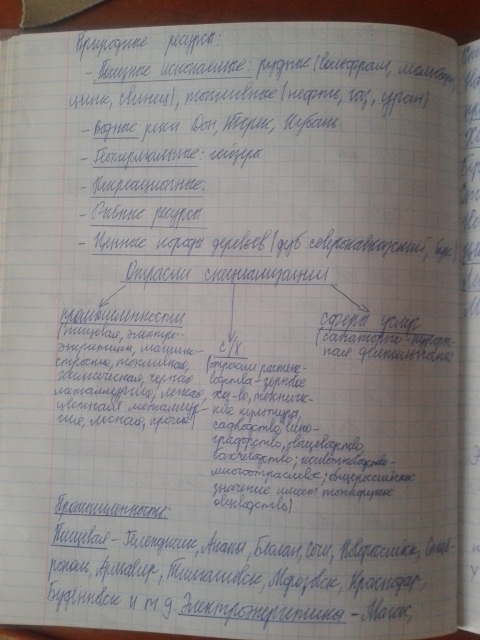 Природные ресурсы:
- Полезные ископаемые: рудные (вольфрам, молибден,
цинк, свинец), топливные (нефть, газ, уран)
- Водные реки Дон, Терек, Кубань
- Геотермальные: гейзеры
- Рекреационные.
- Рыбные ресурсы
- Ценные породы деревьев (дуб северокавказский, бук)
Отрасли специализации
промышленности
(пищевая, электро-
энергетика, машино-
строение, топливная,
химическая, черная
металлургия, легкая,
цветная металлур-
гия, лесная, прочие)
С/Х
(отрасли растене-
водства - зерновое
хоз-во, техничес-
кие культуры,
садводство, вино-
градорство, овощеводство,
бахчеводство; животноводство -
многоотраслевое; общероссийское
значение имеет тонкорунное
овцеводство)
сферы услуг
(санаторно-курорт-
ная деятельность)
Промышленность:
Пищевая - Геленджик, Анапа, Беслан, Сочи, Новороссийск, Став-
рополь, Армавир, Тимашевск, Морозовск, Краснодар,
Буденновск и т д. Электроэнергетика - Магас,